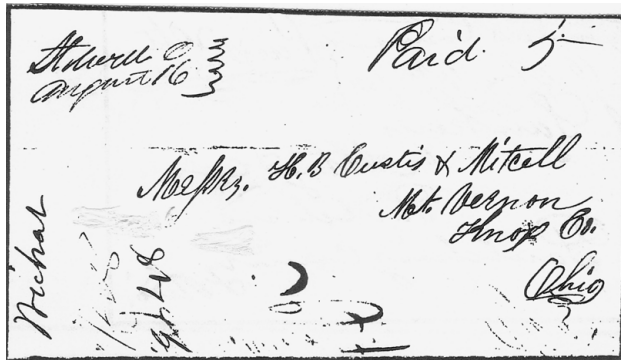 Stilwell O
August 16
Paid. 5
Messrs. H. B Custis & Mitcell
Mt. Vernon
Knox Co.
Ohio